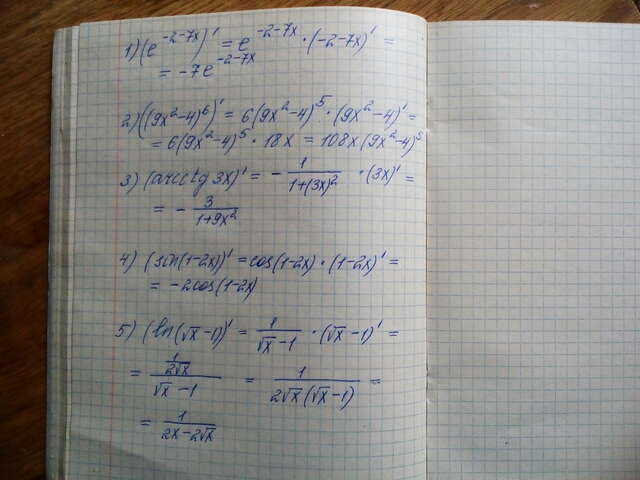 1) (e^{-2-7x})' = e^{-2-7x} · (-2-7x)' =
= -7e^{-2-7x}
2) ((9x²-4)⁶)' = 6(9x²-4)⁵ · (9x²-4)' =
= 6(9x²-4)⁵ · 18x = 108x(9x²-4)⁵
3) (arcctg 3x)' = - 1/(1+(3x)²) · (3x)' =
= - 3/(1+9x²)
4) (sin(1-2x))' = cos(1-2x) · (1-2x)' =
= -2cos(1-2x)
5) (ln(√x-1))' = 1/(√x-1) · (√x-1)' =
= (1/(2√x))/(√x-1) = 1/(2√x(√x-1)) =
= 1/(2x-2√x)